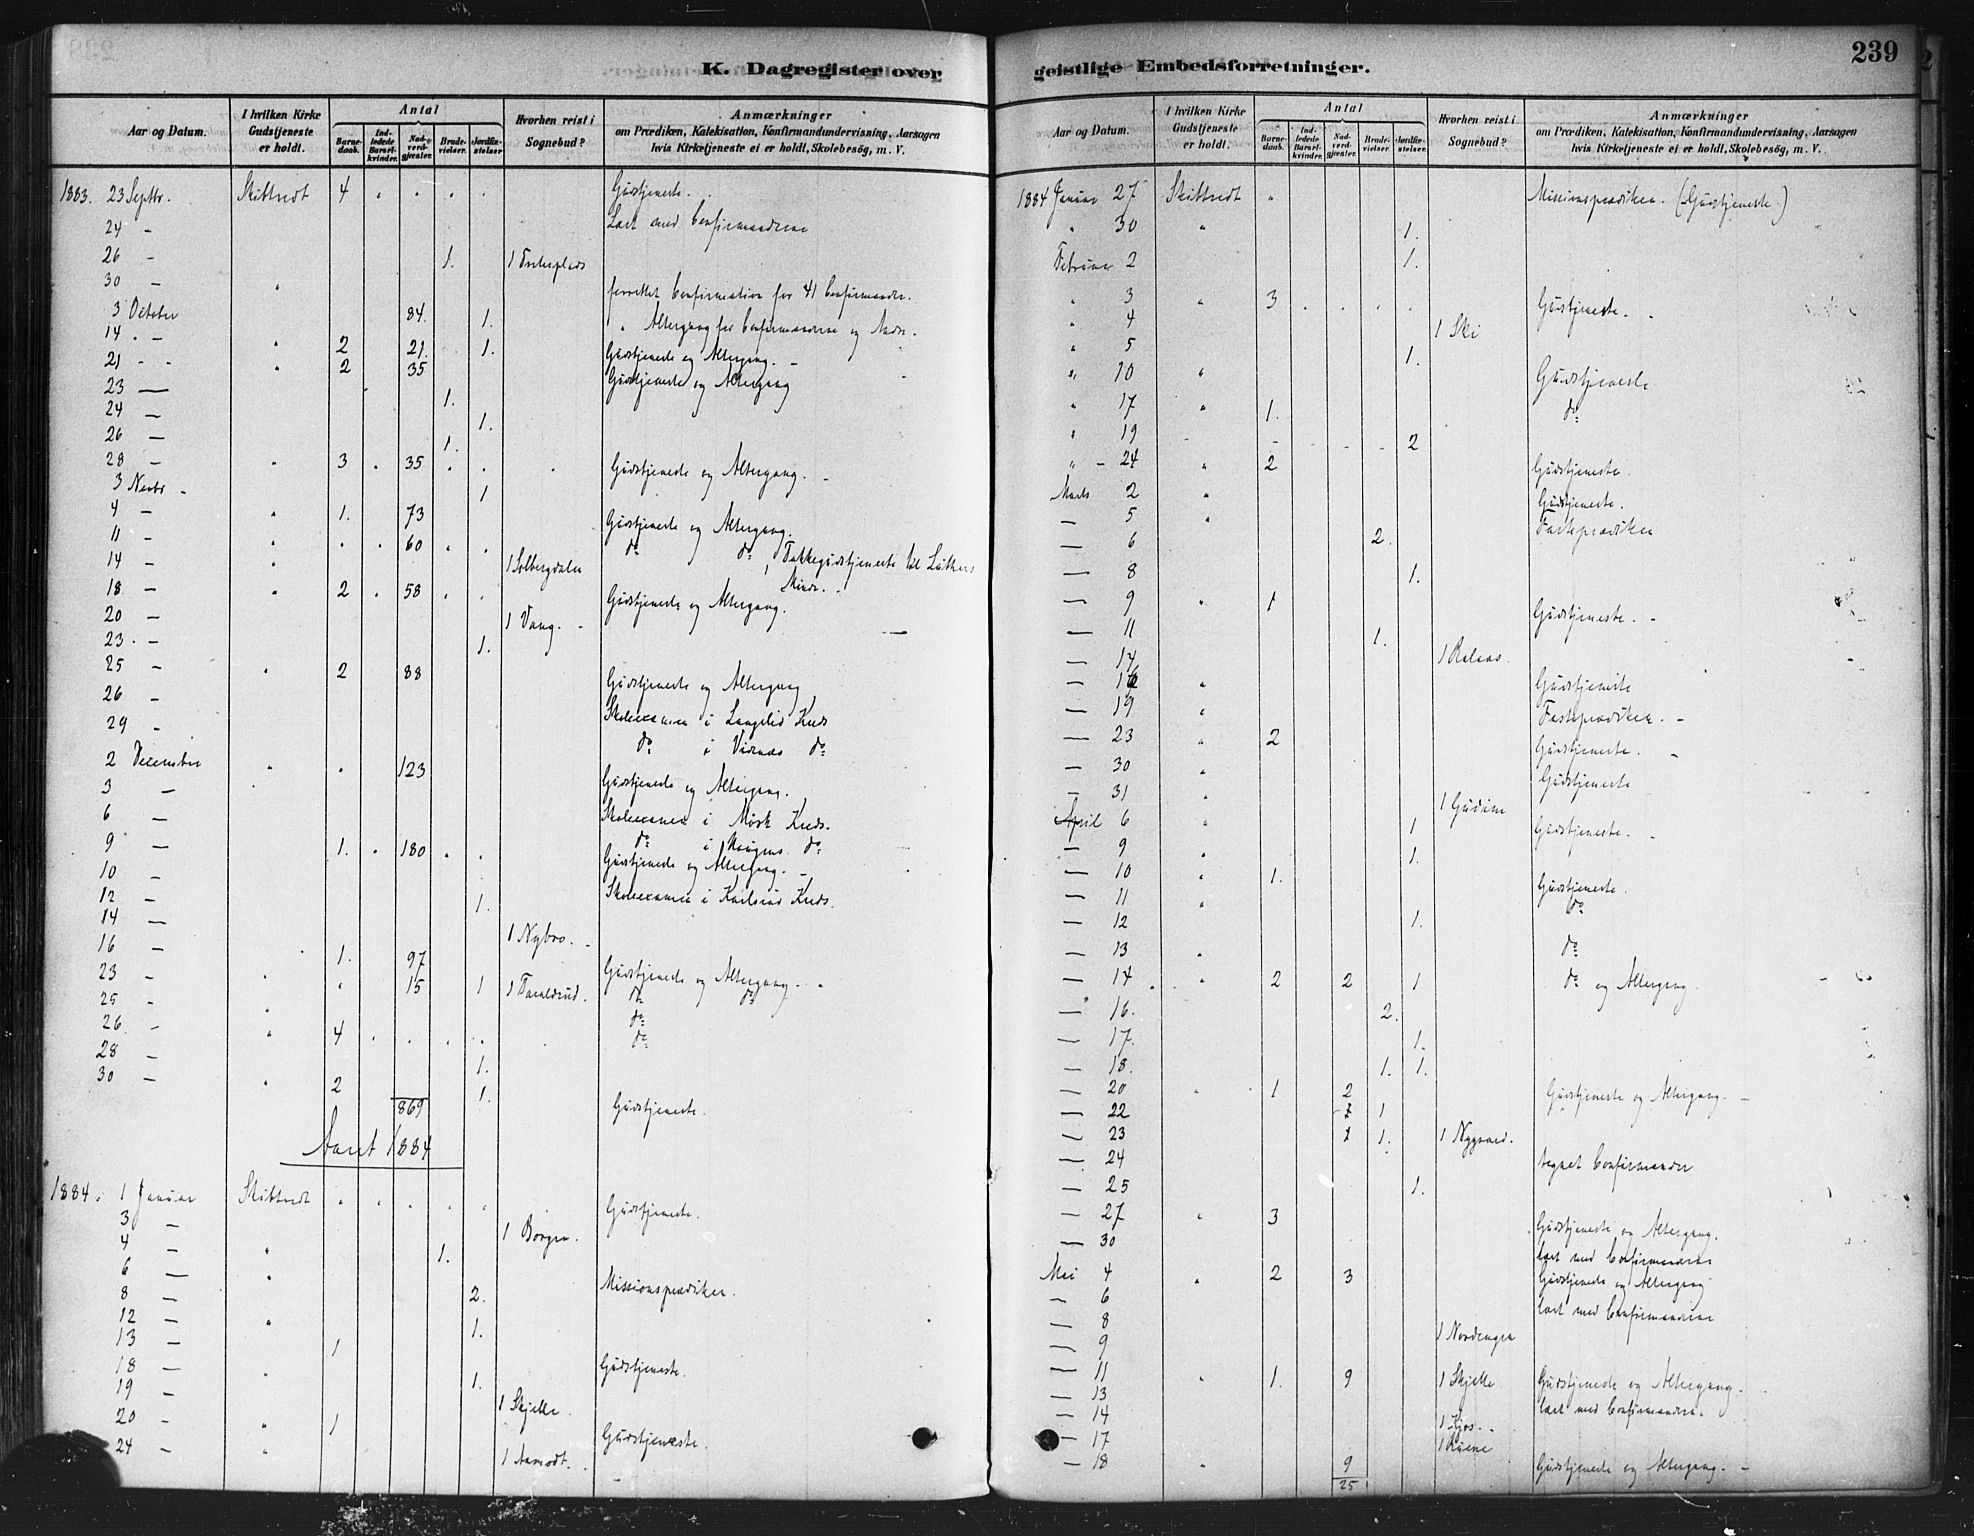 K. Dagregister over
Aar og Datum. I hvilken Kirke Gudstjeneste er holdt. Antal Barnedaab. Indledede Barselkvinder. Nadverdgjester. Brudevielser. Jordfæstelser Hvorhen reist i Sognebud? Anmærkninger om Prædiken, Katekisation, Konfirmandundervisning, Aarsagen hvis Kirketjeneste ei er holdt, Skolebesög, m. V.
1883. 23 Septbr. 4 Gudstjeneste.
24 - Læst med Confirmanderne
26 - 1. 1
30 - forrettet Confirmation for 41 Confirmander.
3 October 84. 1. Altergang for Confirmanderne og Andre.
14 - 2 21. 1. Gudstjeneste og Altergang.
21 - 2 35 Gudstjeneste og Altergang
23 - 1.
24 - 1.
26 - 1.
28 - 3 35 Gudstjeneste og Altergang.
3 Novbr - 1
4 - 1. 73 Gudstjeneste og Altergang.
11 - 60 do do, Takkegudstjeneste til Luthers Minde.
14 - 1 Solbergdalen
18 - 2 58 Gudstjeneste og Altergang.
20 - 1 Vang.
23 - 1.
25 - 2 88 Gudstjeneste og Altergang
26 - Skoleexamen i Langelid Kreds
29 - do i do
2 December 123 Gudstjeneste og Altergang.
3 - Skoleexamen i Mørk Kreds.
6 - do i Haugens do
9 - 1. 180 Gudstjeneste og Altergang.
10 - Skoleexamen i Kreds.
12 - 1.
14 - 1 Nybro.
16 - 1. 97 Gudstjeneste og Altergang.
23 - 15 1 1 Taraldrud. do do
25 - do
26 - 4 do
28 - 1.
30 - 2 1. Gudstjeneste.
869
Aaret 1884
1884. 1 Januar Gudstjeneste.
3 - 1 Borgen.
4 - 1.
6 - Missionsprædiken.
8 - 2.
12 - 1.
13 - 1 Gudstjeneste.
18 - 1.
19 - 1 Skjelle.
20 - 1 Gudstjeneste.
24 - 1 Aamodt.
geistlige Embedsforretninger. 239
Aar og Datum. I hvilken Kirke Gudstjeneste er holdt. Antal Barnedaab. Indledede Barselkvinder. Nadverdgjester. Brudevielser. Jordfæstelser Hvorhen reist i Sognebud? Anmærkninger om Prædiken, Katekisation, Konfirmandundervisning, Aarsagen hvis Kirketjeneste ei er holdt, Skolebesög, m. V.
1884 Januar 27 Missionsprædiken. (Gudstjeneste.)
" 30 1.
Februar 2 1.
" 3 3 Gudstjeneste.
" 4 1 Ski
" 5 1.
" 10 Gudstjeneste
" 17 1. do
" 19 2
" 24 2 Gudstjeneste.
Marts 2 Gudstjeneste.
- 5 Fasteprædiken
- 6 2.
- 8 1.
- 9 1 Gudstjeneste.
- 11 1.
- 14 1
- 16 Gudstjeneste
- 19 Fasteprædiken.
- 23 2 Gudstjeneste.
- 30 Gudstjeneste
- 31 1
April 6 1 Gudstjeneste.
- 9 1.
- 10 1. Gudstjeneste.
- 11 do
- 12 1.
- 13 do
- 14 2 2 1 do og Altergang
- 16. 2.
- 17. 1.
- 18. 1. 1.
- 20 1 2 Gudstjeneste og Altergang.
- 22 1
- 23 1. 1 Nygaard.
- 24 tegnet Confirmander
- 25 1.
- 27 3 Gudstjeneste og Altergang.
- 30 læst med Confirmanderne
Mai 4 2 3 Gudstjeneste og Altergang
- 6 læst med Confirmanderne
- 8
- 9 1 Nordengen
- 11 1. 9 1 Skjelle Gudstjeneste og Altergang.
- 13 læst med Confirmander.
- 14 1 Kjos.
- 17 1
- 18 9 Gudstjeneste og Altergang.
25